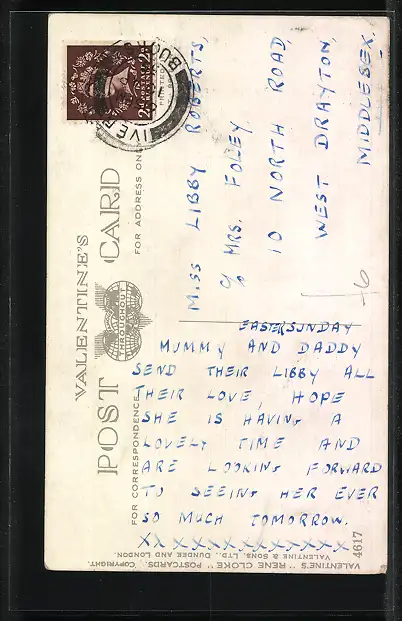 VALENTINE'S
POST CARD
THROUGHOUT
FOR CORRESPONDENCE
FOR ADDRESS ON
POSTAGE
REVENUE
2D
2D
BUC
IVER
MISS LIBBY ROBERTS,
c/o MRS. FOLEY
10 NORTH ROAD,
WEST DRAYTON,
MIDDLESEX.
EASTER SUNDAY
MUMMY AND DADDY
SEND THEIR LIBBY ALL
THEIR LOVE, HOPE
SHE IS HAVING A
LOVELY TIME AND
ARE LOOKING FORWARD
TO SEEING HER EVER
SO MUCH TOMORROW.
XXXXXXXXXXXXX
4617
VALENTINE'S "RENE CLOKE" POSTCARDS. COPYRIGHT.
VALENTINE & SONS, LTD., DUNDEE AND LONDON.